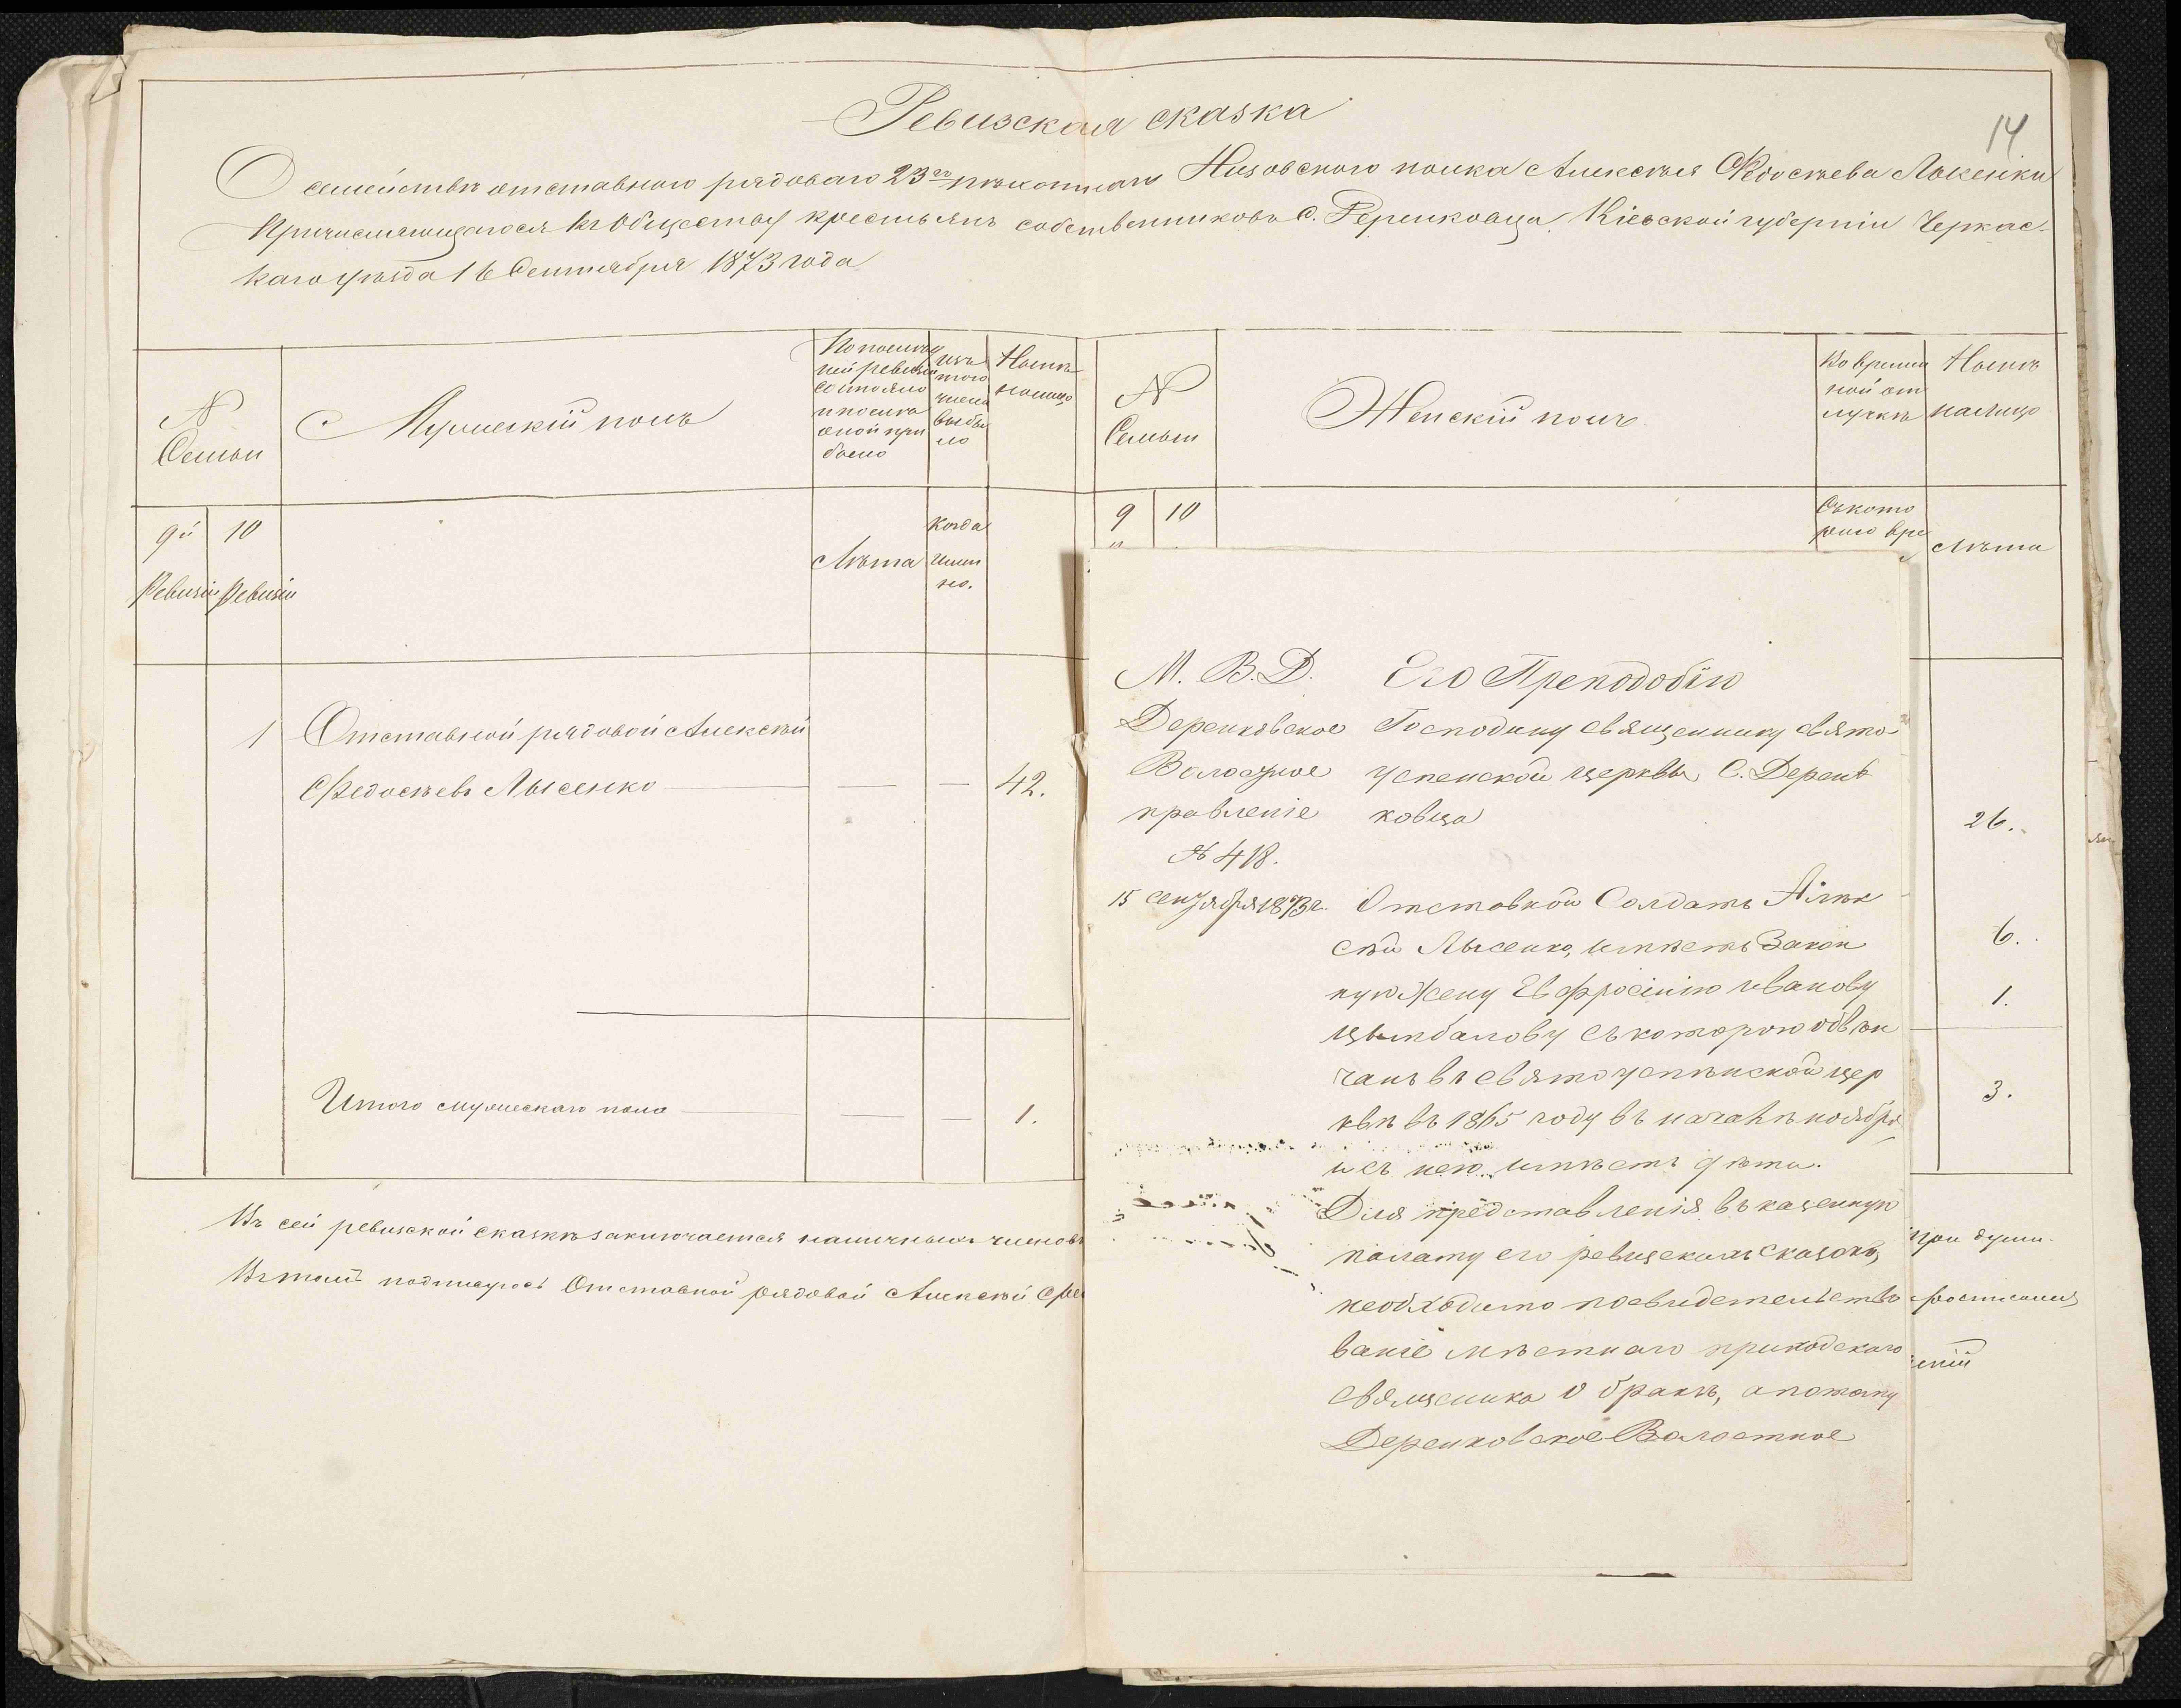 14
Ревизская сказка
О семействѣ отставного рядоваго 23го пѣхотнаго Низовского полка Алексѣя Федосѣева Лысенки
Причисляющагося къ Обществу крестьянъ собственниковъ С. Деренковца, Кіевской губерніи Черкас-
каго уѣзда 16 Сентября 1873 года
№
Семьи
Мужескій полъ
По послѣд
ней ревизіи
состояло
и послѣ
оной при
было
изъ
того
числа
выбы
ло
Нынѣ
налицо
9й
Ревизіи
10
Ревизіи
Лѣта
Когда
имен
но.
1 Отставной рядовой Алексѣй
Федосѣевъ Лысенко — — — 42.
Итого мужескаго пола — — — 1.
№
Семьи
Женскій полъ
Во времен
ной от
лучкѣ
Нынѣ
налицо
9
10
Съ кото
раго вре
Лѣта
26.
6.
1.
3.
Въ сей ревизской сказкѣ заключается наличныхъ
три души.
Въ томъ подписуюсь Отставной рядовой Алексѣй
М. В. Д.
Деренковское
Волостное
правленіе
№ 418.
15 сентября 1873 г.
Его Преподобію
Господину священнику свято-
успенской церквы С. Дерен
ковца
Отставной Солдатъ Алек
сѣй Лысенко, имѣетъ закон
ную жену Евфросинію Иванову
Цымбалову съ которою обвѣн
чанъ въ свято успѣнской цер
квѣ въ 1865 году въ началѣ ноября
и съ нею имѣетъ дѣти.
Для представленія въ казенную
палату его ревизскихъ сказокъ,
необходимо посвидетельство
ваніе мѣстнаго приходскаго
священика о бракѣ, а потому
Деренковское Волостное